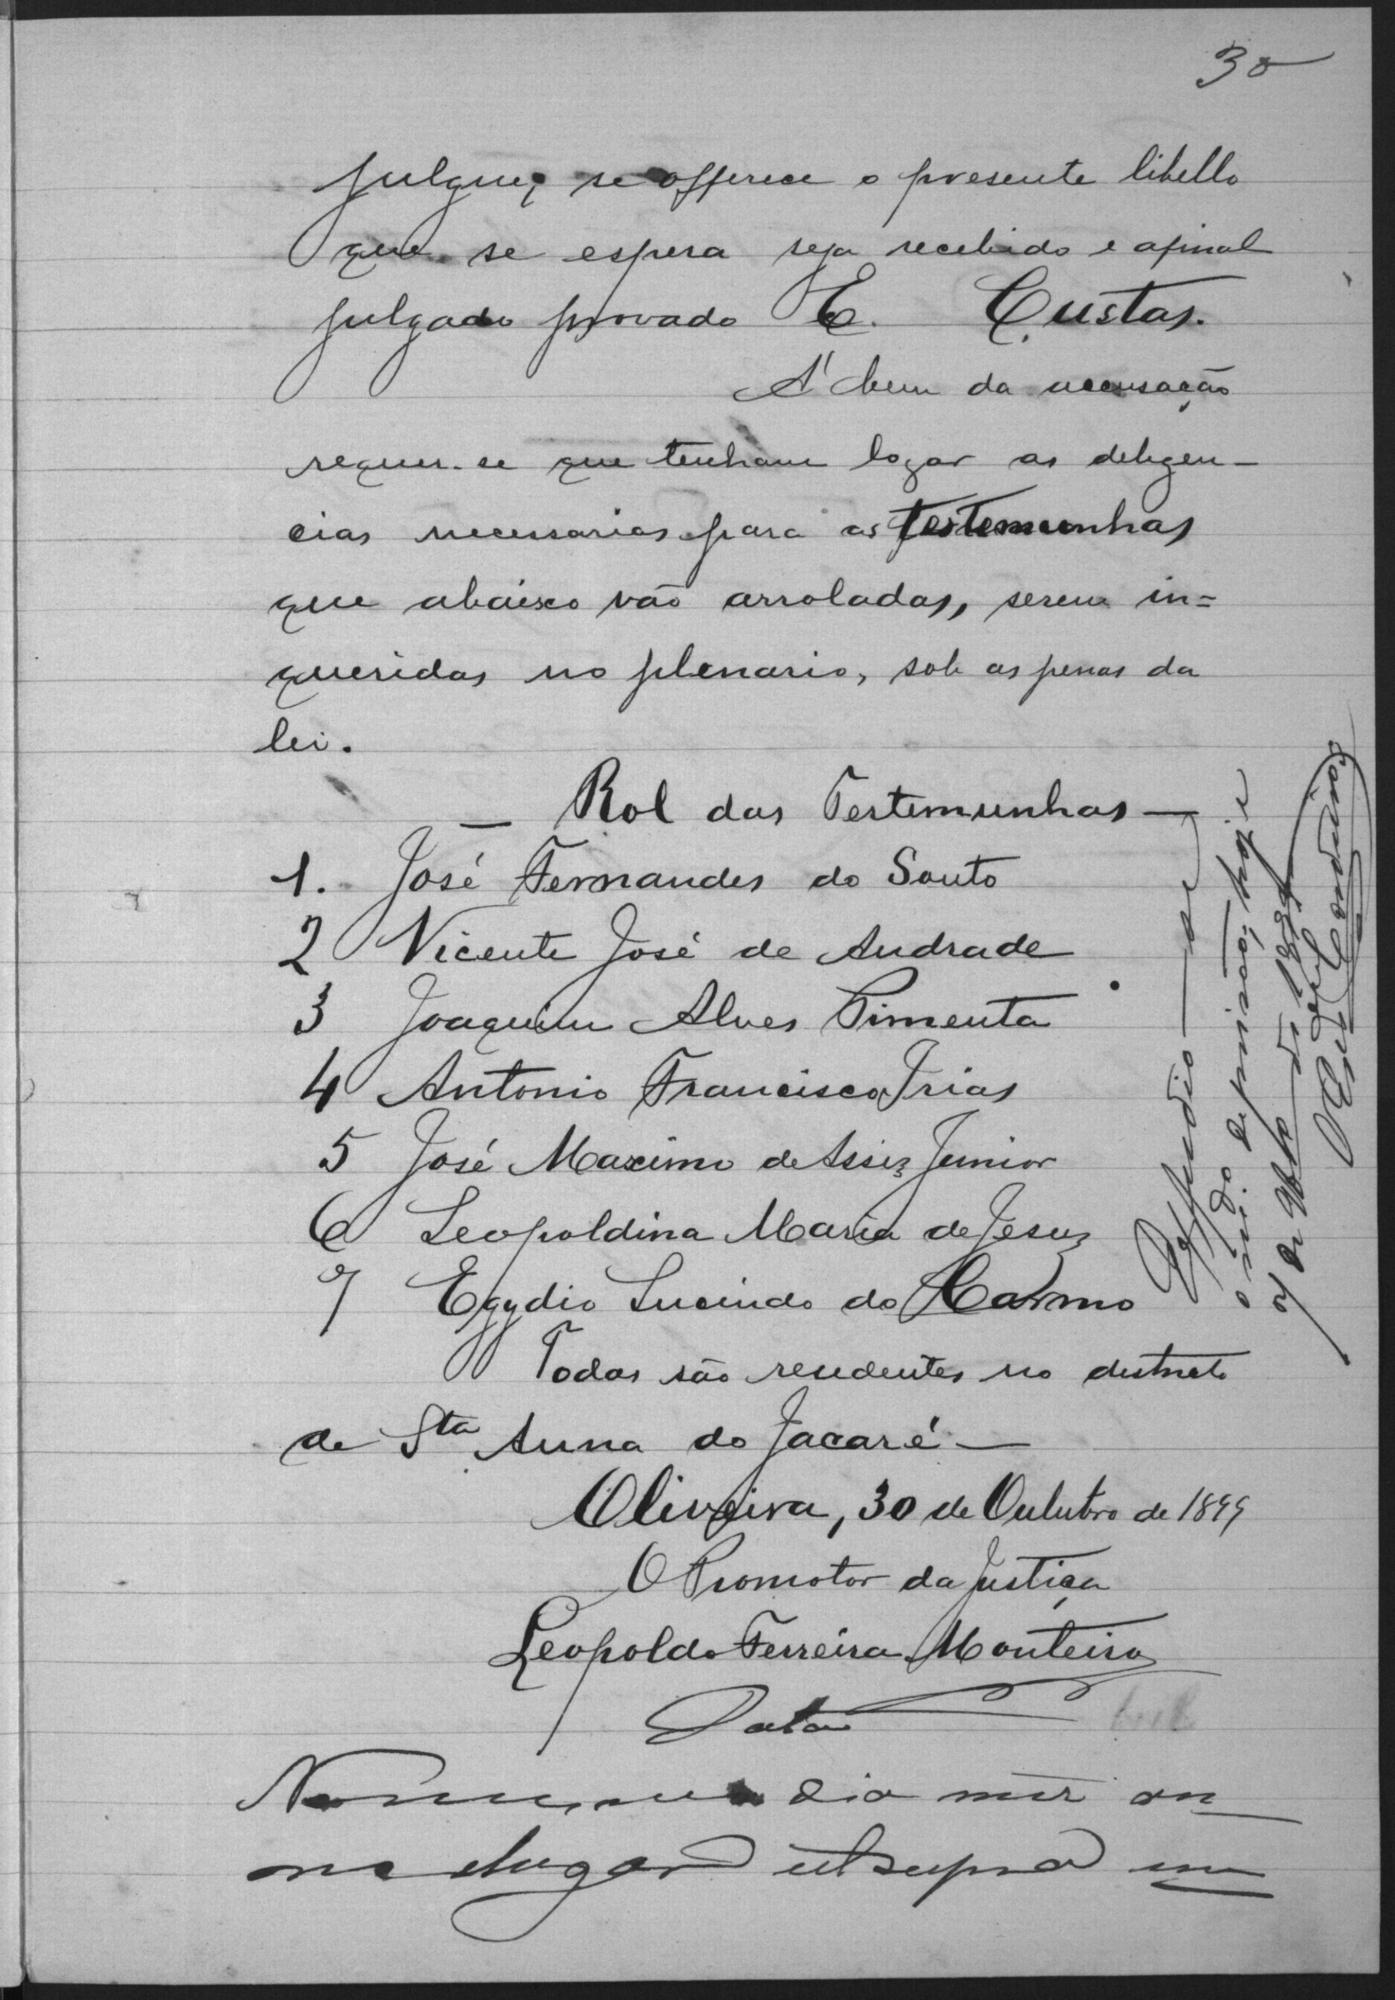 30
julgue, se offerece o presente libello
que se espera seja recebido e afinal
julgado provado E. Custas.
A' bem da accusação
requer-se que tenham logar as deligen-
cias necessarias para as testemunhas
que abaixo vão arroladas, serem in=
queridas no plenario, sob as penas da
lei.
— Rol das Testemunhas —
1. José Fernandes do Souto
2 Vicente José de Andrade
3 Joaquim Alves Pimenta
4 Antonio Francisco Frias
5 José Maximo de Assiz Junior
6 Leopoldina Maria de Jesuz
7 Egydio Lucindo do Carmo
Todas são residentes no districto
de Sta Anna do Jacaré —
Oliveira, 30 de Outubro de 1899
O Promotor da Justiça
Leopoldo Ferreira Monteiro
Data
No mesmo dia mez an
no e lugar ut supra em
de prisão, hoje
O Escrivão